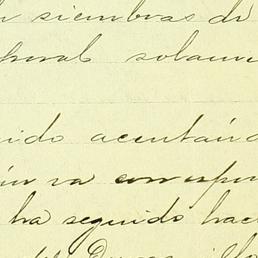 siembras de
solame
ido acentuánd
ún va corresp
ha seguido hac